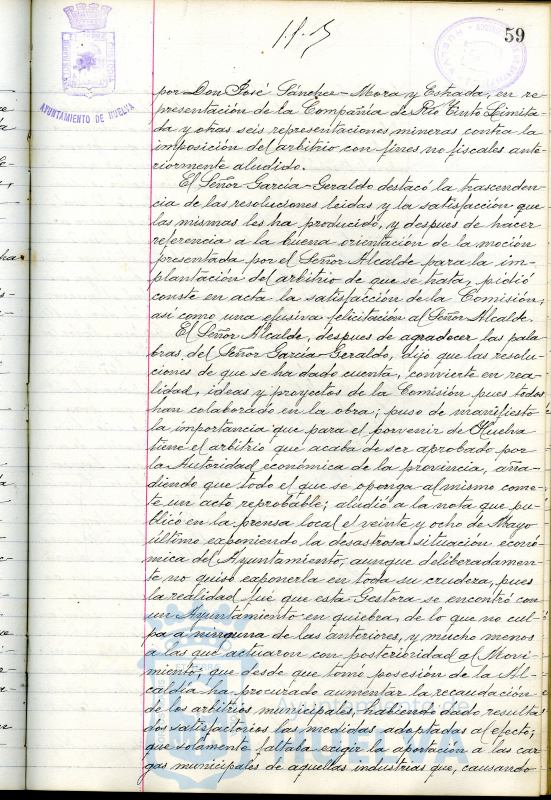 59
AYUNTAMIENTO DE HUELVA
por Don José Sánchez-Mora y Estrada, en re
presentación de la Compañía de Río Tinto Limita-
da y otras seis representaciones mineras contra la
imposición del arbitrio con fines no fiscales ante
riormente aludido.
El Señor García-Geraldo destacó la trascenden
cia de las resoluciones leidas y la satisfacción que
las mismas les ha producido, y despues de hacer
referencia a la buena orientación de la moción
presentada por el Señor Alcalde para la im-
plantación del arbitrio de que se trata, pidió
conste en acta la satisfacción de la Comisión,
así como una efusiva felicitación al Señor Alcalde.
El Señor Alcalde, despues de agradecer las pala
bras del Señor García Geraldo, dijo que las resolu-
ciones de que se ha dado cuenta, convierte en rea-
lidad, ideas y proyectos de la Comisión pues todos
han colaborado en la obra; puso de manifiesto
la importancia que para el porvenir de Huelva
tiene el arbitrio que acaba de ser aprobado por
la Autoridad económica de la provincia, aña-
diendo que todo el que se oponga al mismo come-
te un acto reprobable; aludió a la nota que pu-
blicó en la prensa local el veinte y ocho de Mayo
último exponiendo la desastrosa situación econó-
mica del Ayuntamiento, aunque deliberadamen-
te no quiso exponerla en toda su crudeza, pues
la realidad fué que esta Gestora se encontró con
un Ayuntamiento en quiebra, de lo que no cul-
pa a ninguna de las anteriores, y mucho menos
a las que actuaron con posterioridad al Movi-
miento; que desde que tomó posesión de la Al-
caldía ha procurado aumentar la recaudación
de los arbitrios municipales, habiendo dado resulta
dos satisfactorios las medidas adoptadas al efecto;
que solamente faltaba exigir la aportación a las car
gas municipales de aquellas industrias que, causando
Ayuntamiento de
HUELVA